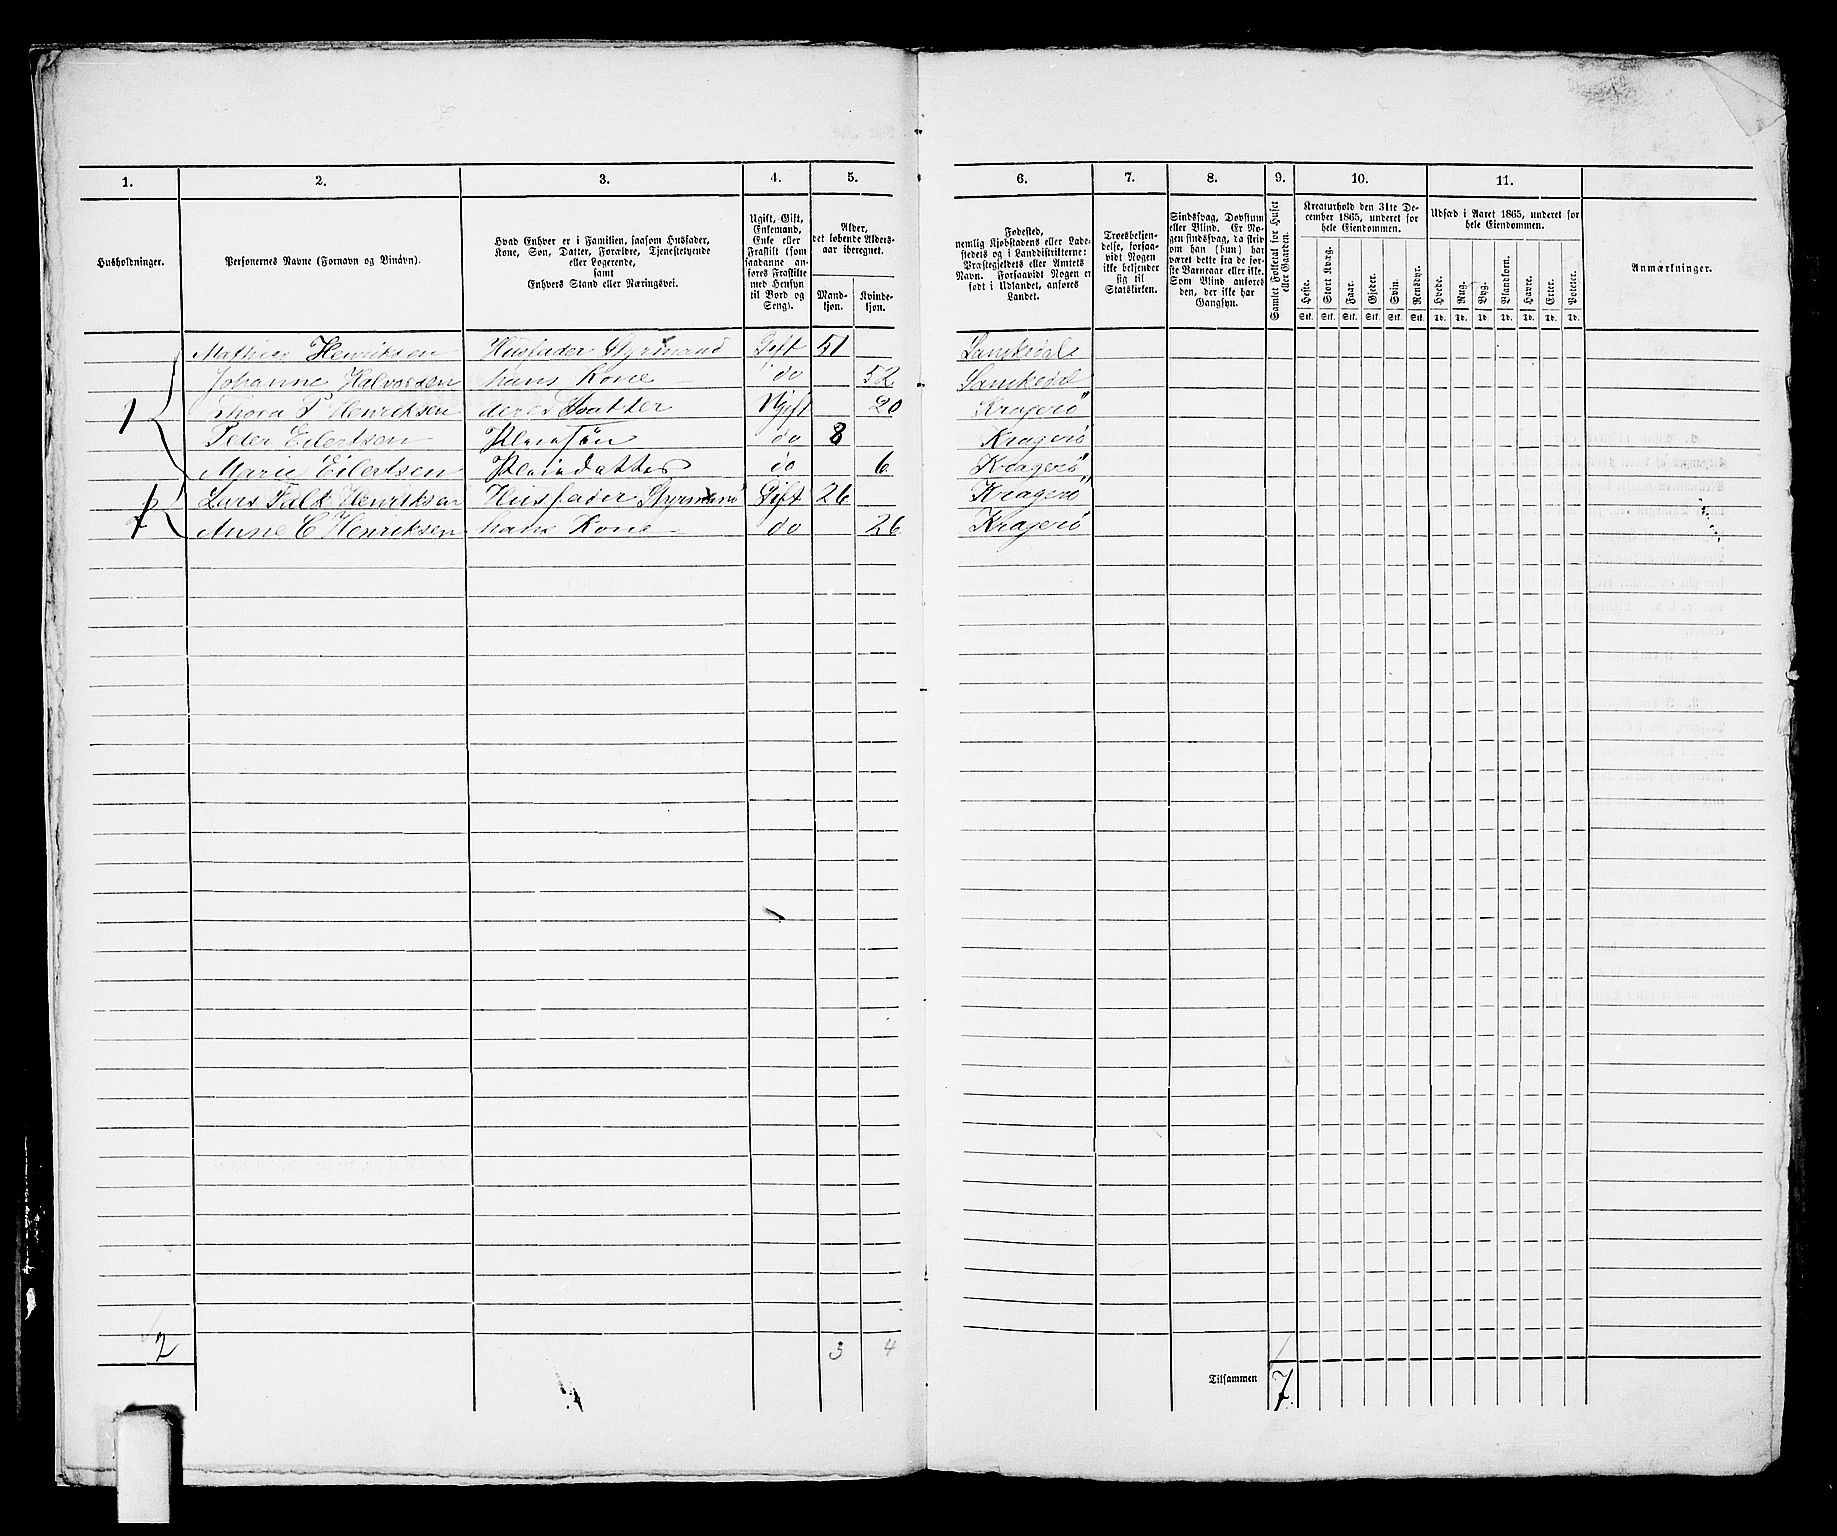 1. 2. 3. 4. 5. 6. 7. 8. 9. 10. 11.
Husholdninger.
Personernes Navne (Fornavn og Binavn).
Hvad Enhver er i Familien, saasom Husfader,
Kone, Søn, Datter, Forældre, Tjenestetyende
eller Logerende,
samt
Enhvers Stand eller Næringsvei.
Ugift, Gift,
Enkemand,
Enke eller
Fraskilt (som
saadanne an-
føres Fraskilte
med Hensyn
til Bord og
Seng).
Alder,
det løbende Alders-
aar iberegnet.
Mand-
kjøn.
Kvinde-
kjøn.
Fødested,
nemlig Kjøbstadens eller Lade-
stedets og i Landdistrikterne:
Præstegjeldets eller Amtets
Navn. Forsaavidt Nogen er
født i Udlandet, anføres
Landet.
Troesbekjen-
delse, forsaa-
vidt Nogen
ikke bekjender
sig til
Statskirken.
Sindssvag, Døvstum
eller Blind. Er No-
gen sindssvag, da skriv
om han (hun) har
været dette fra de før-
ste Barneaar eller ikke.
Som Blind anføres
den, der ikke har
Gangsyn.
Samlet Folketal for Huset
eller Gaarden.
Kreaturhold den 31te De-
cember 1865, underet for
hele Eiendommen.
Heste. Stort Kvæg. Faar. Gjeder. Svin. Rensdyr.
Stk. Stk. Stk. Stk. Stk. Stk.
Udsæd i Aaret 1865, underet for
hele Eiendommen.
Hvede. Rug. Byg. Blandkorn. Havre. Erter. Poteter.
Td. Td. Td. Td. Td. Td. Td.
Anmærkninger.
Mathias Henriksen Husfader Styrmand Gift 51 Sanikedal
Johanne Halvorsen hans Kone do 52 Sanikedal
1 Thora P Henriksen deres Datter Ugift 20 Kragerø
Peter Eilertsen Pleiesøn do 8 Kragerø
Marie Eilertsen Pleiedatter do 6 Kragerø
Lars Falk Henriksen Husfader Styrmand Gift 26 Kragerø
1 Anne C Henriksen hans Kone do 26 Kragerø
2 3 4
Tilsammen 7